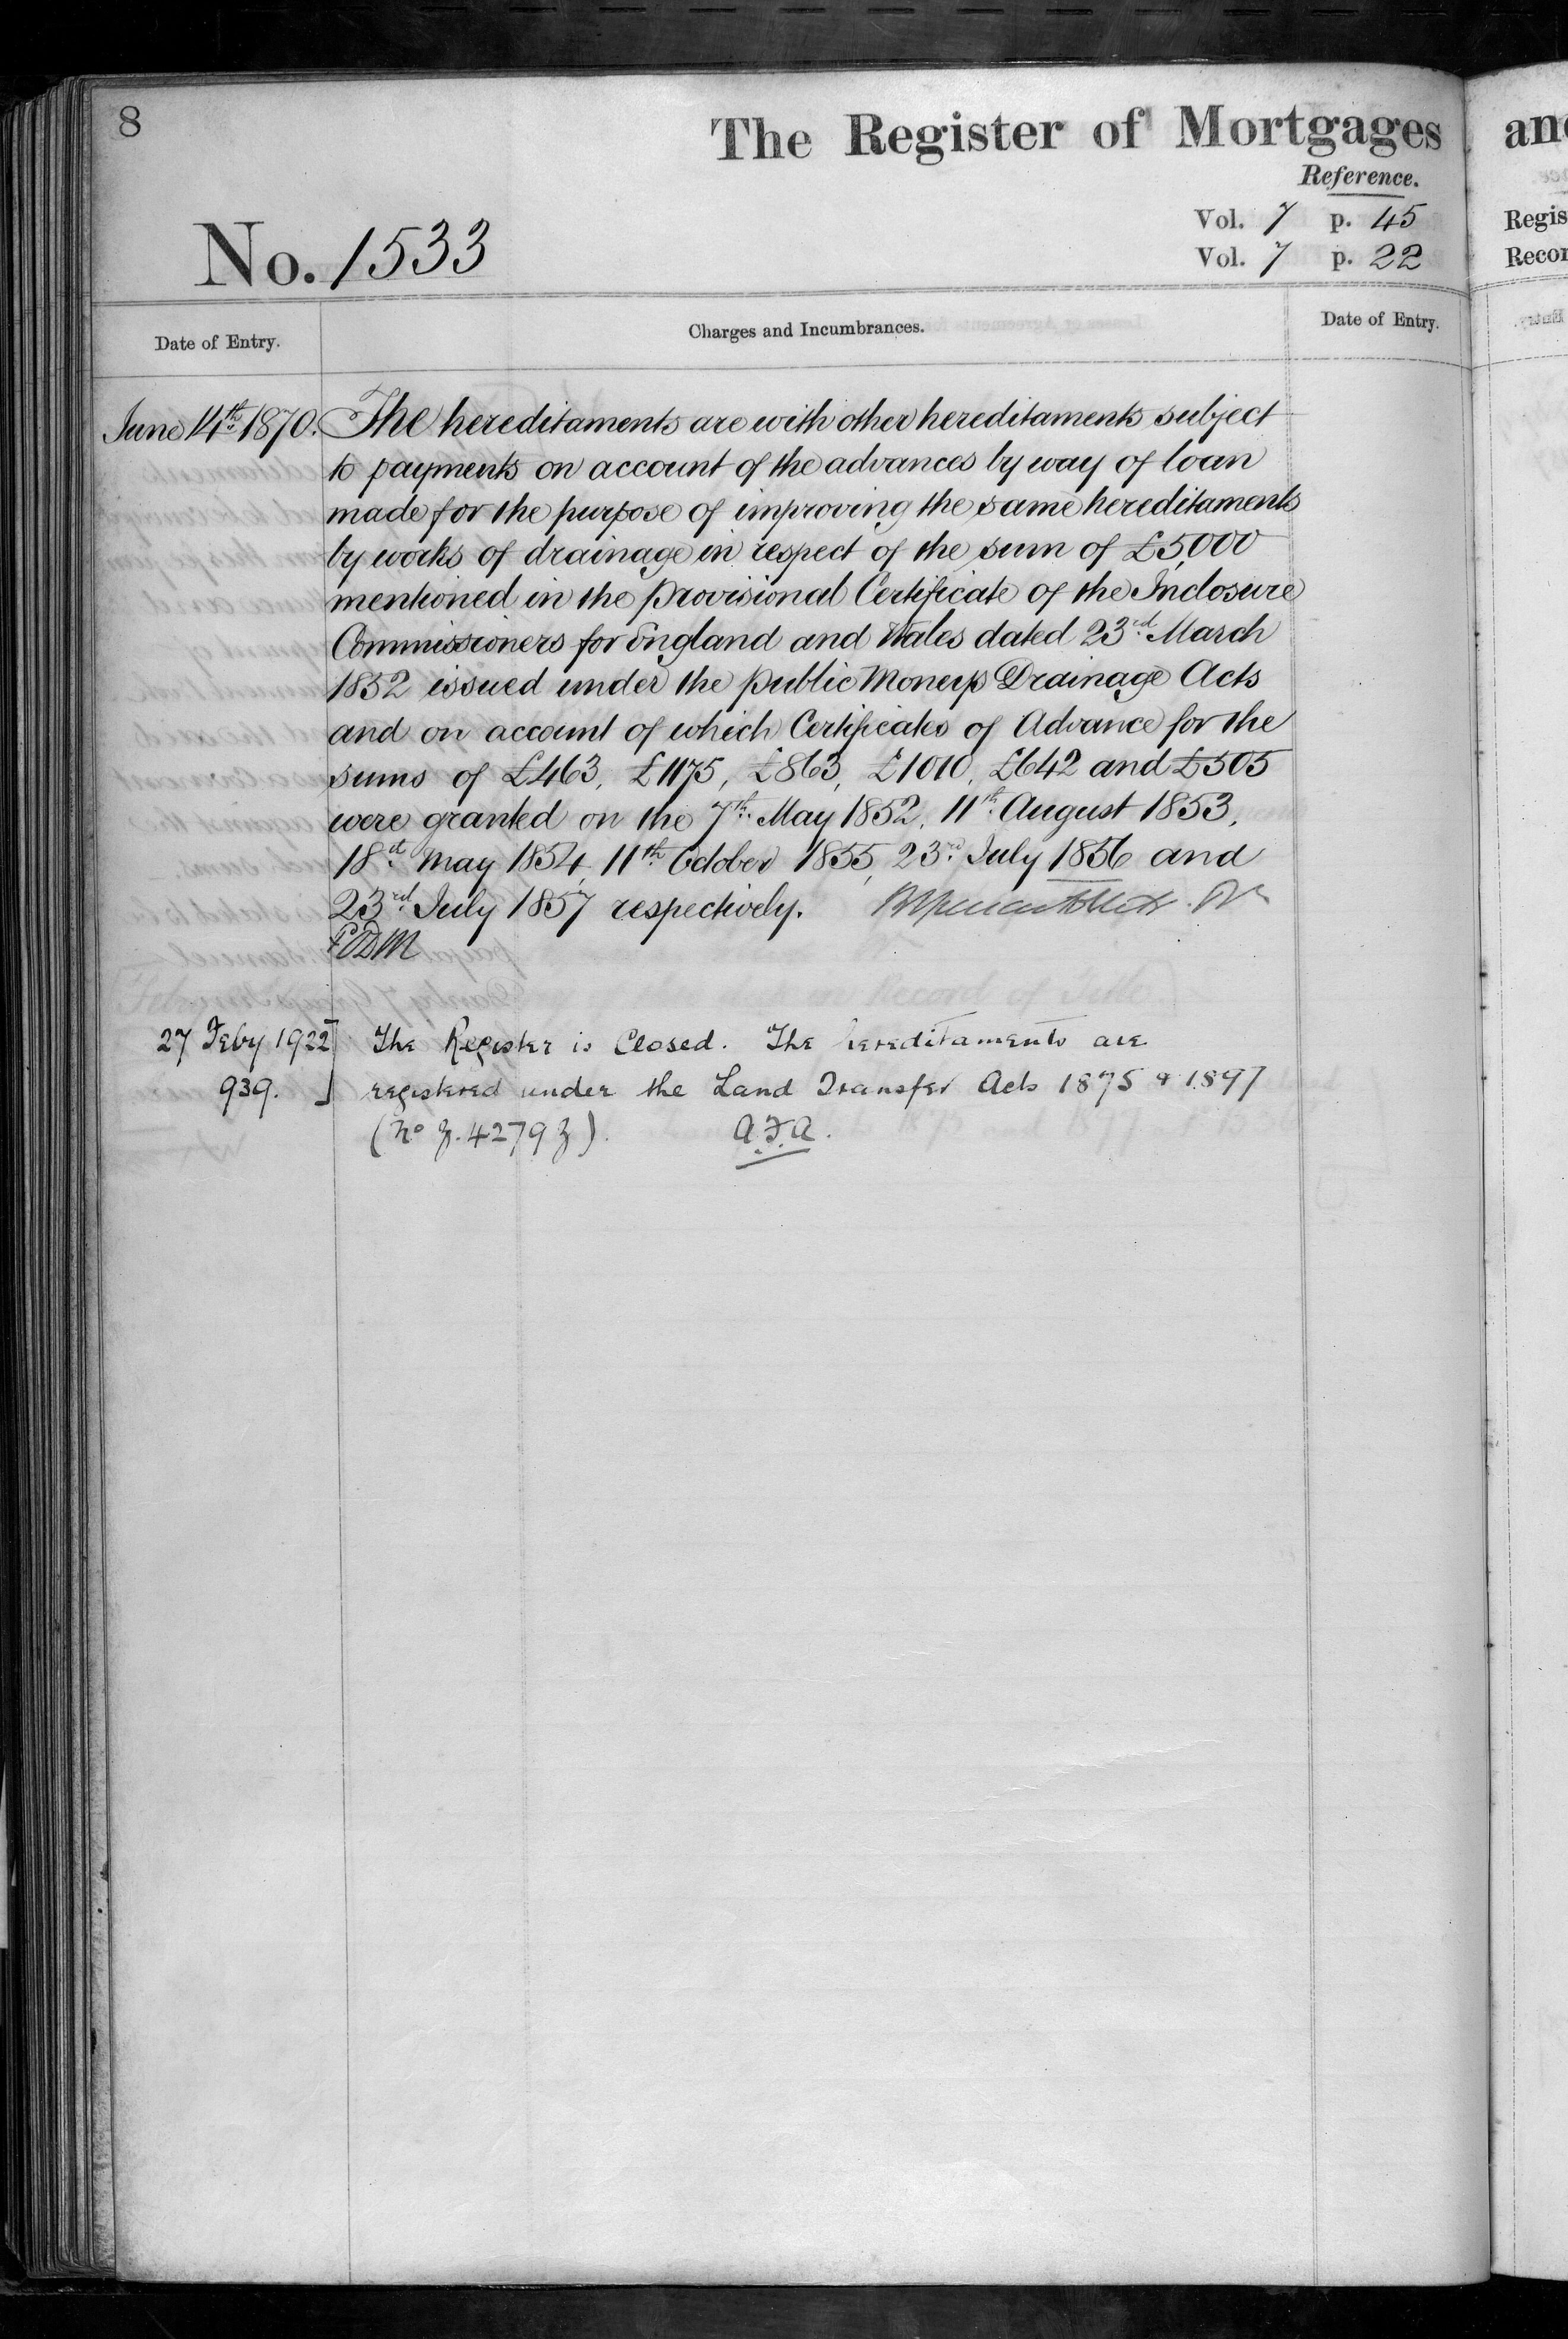 8
The Register of Mortgages
Reference.
Vol. 7 p. 45
Vol. 7 p. 22
No. 1533
Date of Entry.
Charges and Incumbrances.
Date of Entry.
June 14th 1870. The hereditaments are with other hereditaments subject
to payments on account of the advances by way of loan
made for the purpose of improving the same hereditaments
by works of drainage in respect of the sum of £5,000
mentioned in the Provisional Certificate of the Inclosure
Commissioners for England and Wales dated 23rd March
1852 issued under the Public Moneys Drainage Acts
and on account of which Certificates of Advance for the
sums of £463, £1175, £863, £1010, £642 and £505
were granted on the 7th May 1852, 11th August 1853,
18st May 1854, 11th October 1855, 23rd July 1856 and
23rd July 1857 respectively.
27 Feby 1922 The Register is Closed. The hereditaments are
939. registered under the Land Transfer Acts 1875 & 1897
(No z. 4279 z). A.F.A.
an
Regis
Recor